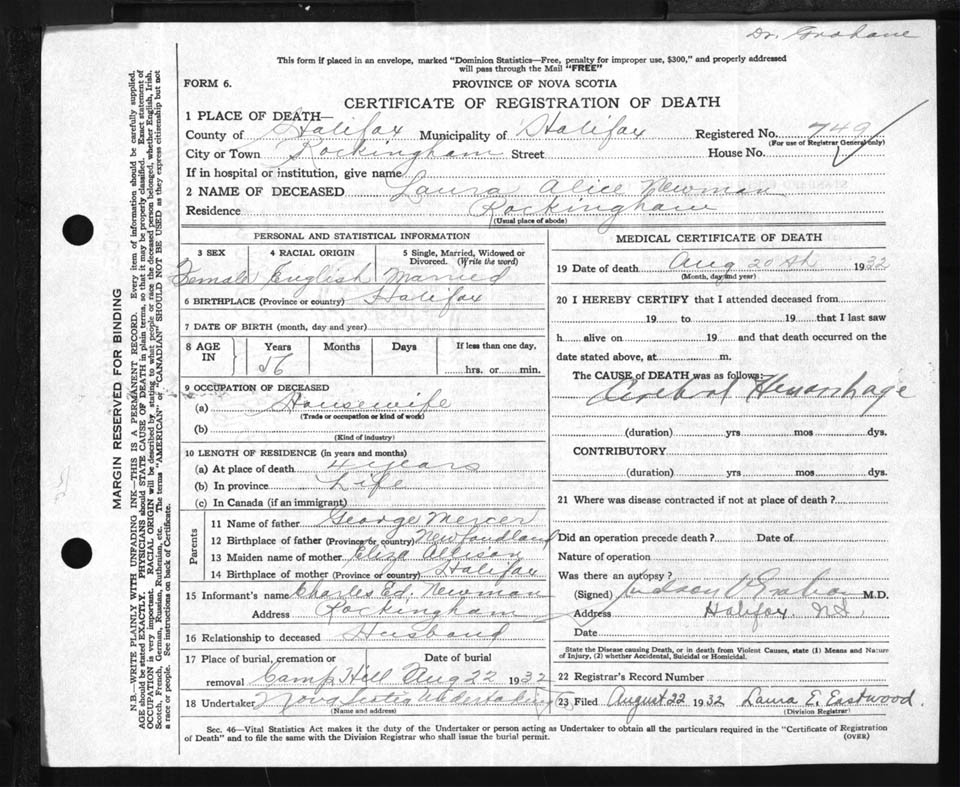 Dr. Grahame
This form if placed in an envelope, marked "Dominion Statistics—Free, penalty for improper use, $300," and properly addressed
will pass through the Mail "FREE"
FORM 6.
PROVINCE OF NOVA SCOTIA
CERTIFICATE OF REGISTRATION OF DEATH
1 PLACE OF DEATH—
County of Halifax Municipality of Halifax Registered No. 749
(For use of Registrar General only)
City or Town Rockingham Street House No.
If in hospital or institution, give name
2 NAME OF DECEASED Laura Alice Newman
Residence Rockingham
(Usual place of abode)
PERSONAL AND STATISTICAL INFORMATION
3 SEX 4 RACIAL ORIGIN 5 Single, Married, Widowed or
Divorced. (Write the word)
Female English Married
6 BIRTHPLACE (Province or country) Halifax
7 DATE OF BIRTH (month, day and year)
8 AGE IN Years Months Days If less than one day,
56 hrs. or min.
9 OCCUPATION OF DECEASED
(a) Housewife
(Trade or occupation or kind of work)
(b)
(Kind of industry)
10 LENGTH OF RESIDENCE (in years and months)
(a) At place of death 4 years
(b) In province Life
(c) In Canada (if an immigrant)
Parents
11 Name of father George Mercer
12 Birthplace of father (Province or country) Newfoundland
13 Maiden name of mother Eliza Allison
14 Birthplace of mother (Province or country) Halifax
15 Informant's name Charles Ed. Newman
Address Rockingham
16 Relationship to deceased Husband
17 Place of burial, cremation or removal Date of burial
Camp Hill Aug 22 1932
18 Undertaker Nova Scotia Undertaking
(Name and address)
MEDICAL CERTIFICATE OF DEATH
19 Date of death Aug 20th 1932
(Month, day and year)
20 I HEREBY CERTIFY that I attended deceased from
19 to 19 that I last saw
h alive on 19 and that death occurred on the
date stated above, at m.
The CAUSE of DEATH was as follows:
Cerebral Hemorrhage
(duration) yrs mos dys.
CONTRIBUTORY
(duration) yrs. mos. dys.
21 Where was disease contracted if not at place of death?
Did an operation precede death? Date of
Nature of operation
Was there an autopsy?
(Signed) Judson V Graham M.D.
Address Halifax N.S.
Date
State the Disease causing Death, or in death from Violent Causes, state (1) Means and Nature
of Injury, (2) whether Accidental, Suicidal or Homicidal.
22 Registrar's Record Number
23 Filed August 22 1932 Laura E. Eastwood.
(Division Registrar)
Sec. 46—Vital Statistics Act makes it the duty of the Undertaker or person acting as Undertaker to obtain all the particulars required in the "Certificate of Registration
of Death" and to file the same with the Division Registrar who shall issue the burial permit.
(OVER)
MARGIN RESERVED FOR BINDING
N.B.—WRITE PLAINLY WITH UNFADING INK—THIS IS A PERMANENT RECORD. Every item of information should be carefully supplied.
AGE should be stated EXACTLY. PHYSICIANS should STATE CAUSE OF DEATH in plain terms, so that it may be properly classified. Exact statement of
OCCUPATION is very important. RACIAL ORIGIN will be described by stating to what people or race the deceased person belonged, whether English, Irish,
Scotch, French, German, Russian, Ruthenian, etc. The terms "AMERICAN" or "CANADIAN" SHOULD NOT BE USED as they express citizenship but not
a race or people. See instructions on back of Certificate.